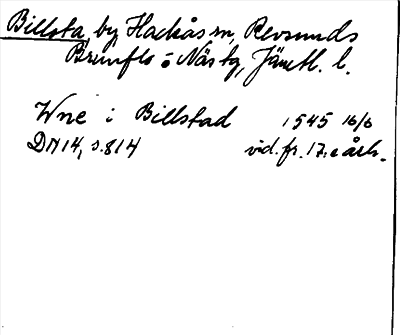 Billsta, by Hackås sn, Revsunds
Brunflo o Näs tg, Jämtl. l.
Wne i Billstad 1545 16/6
DN 14, s. 814 vid. fr. 17:e årh.